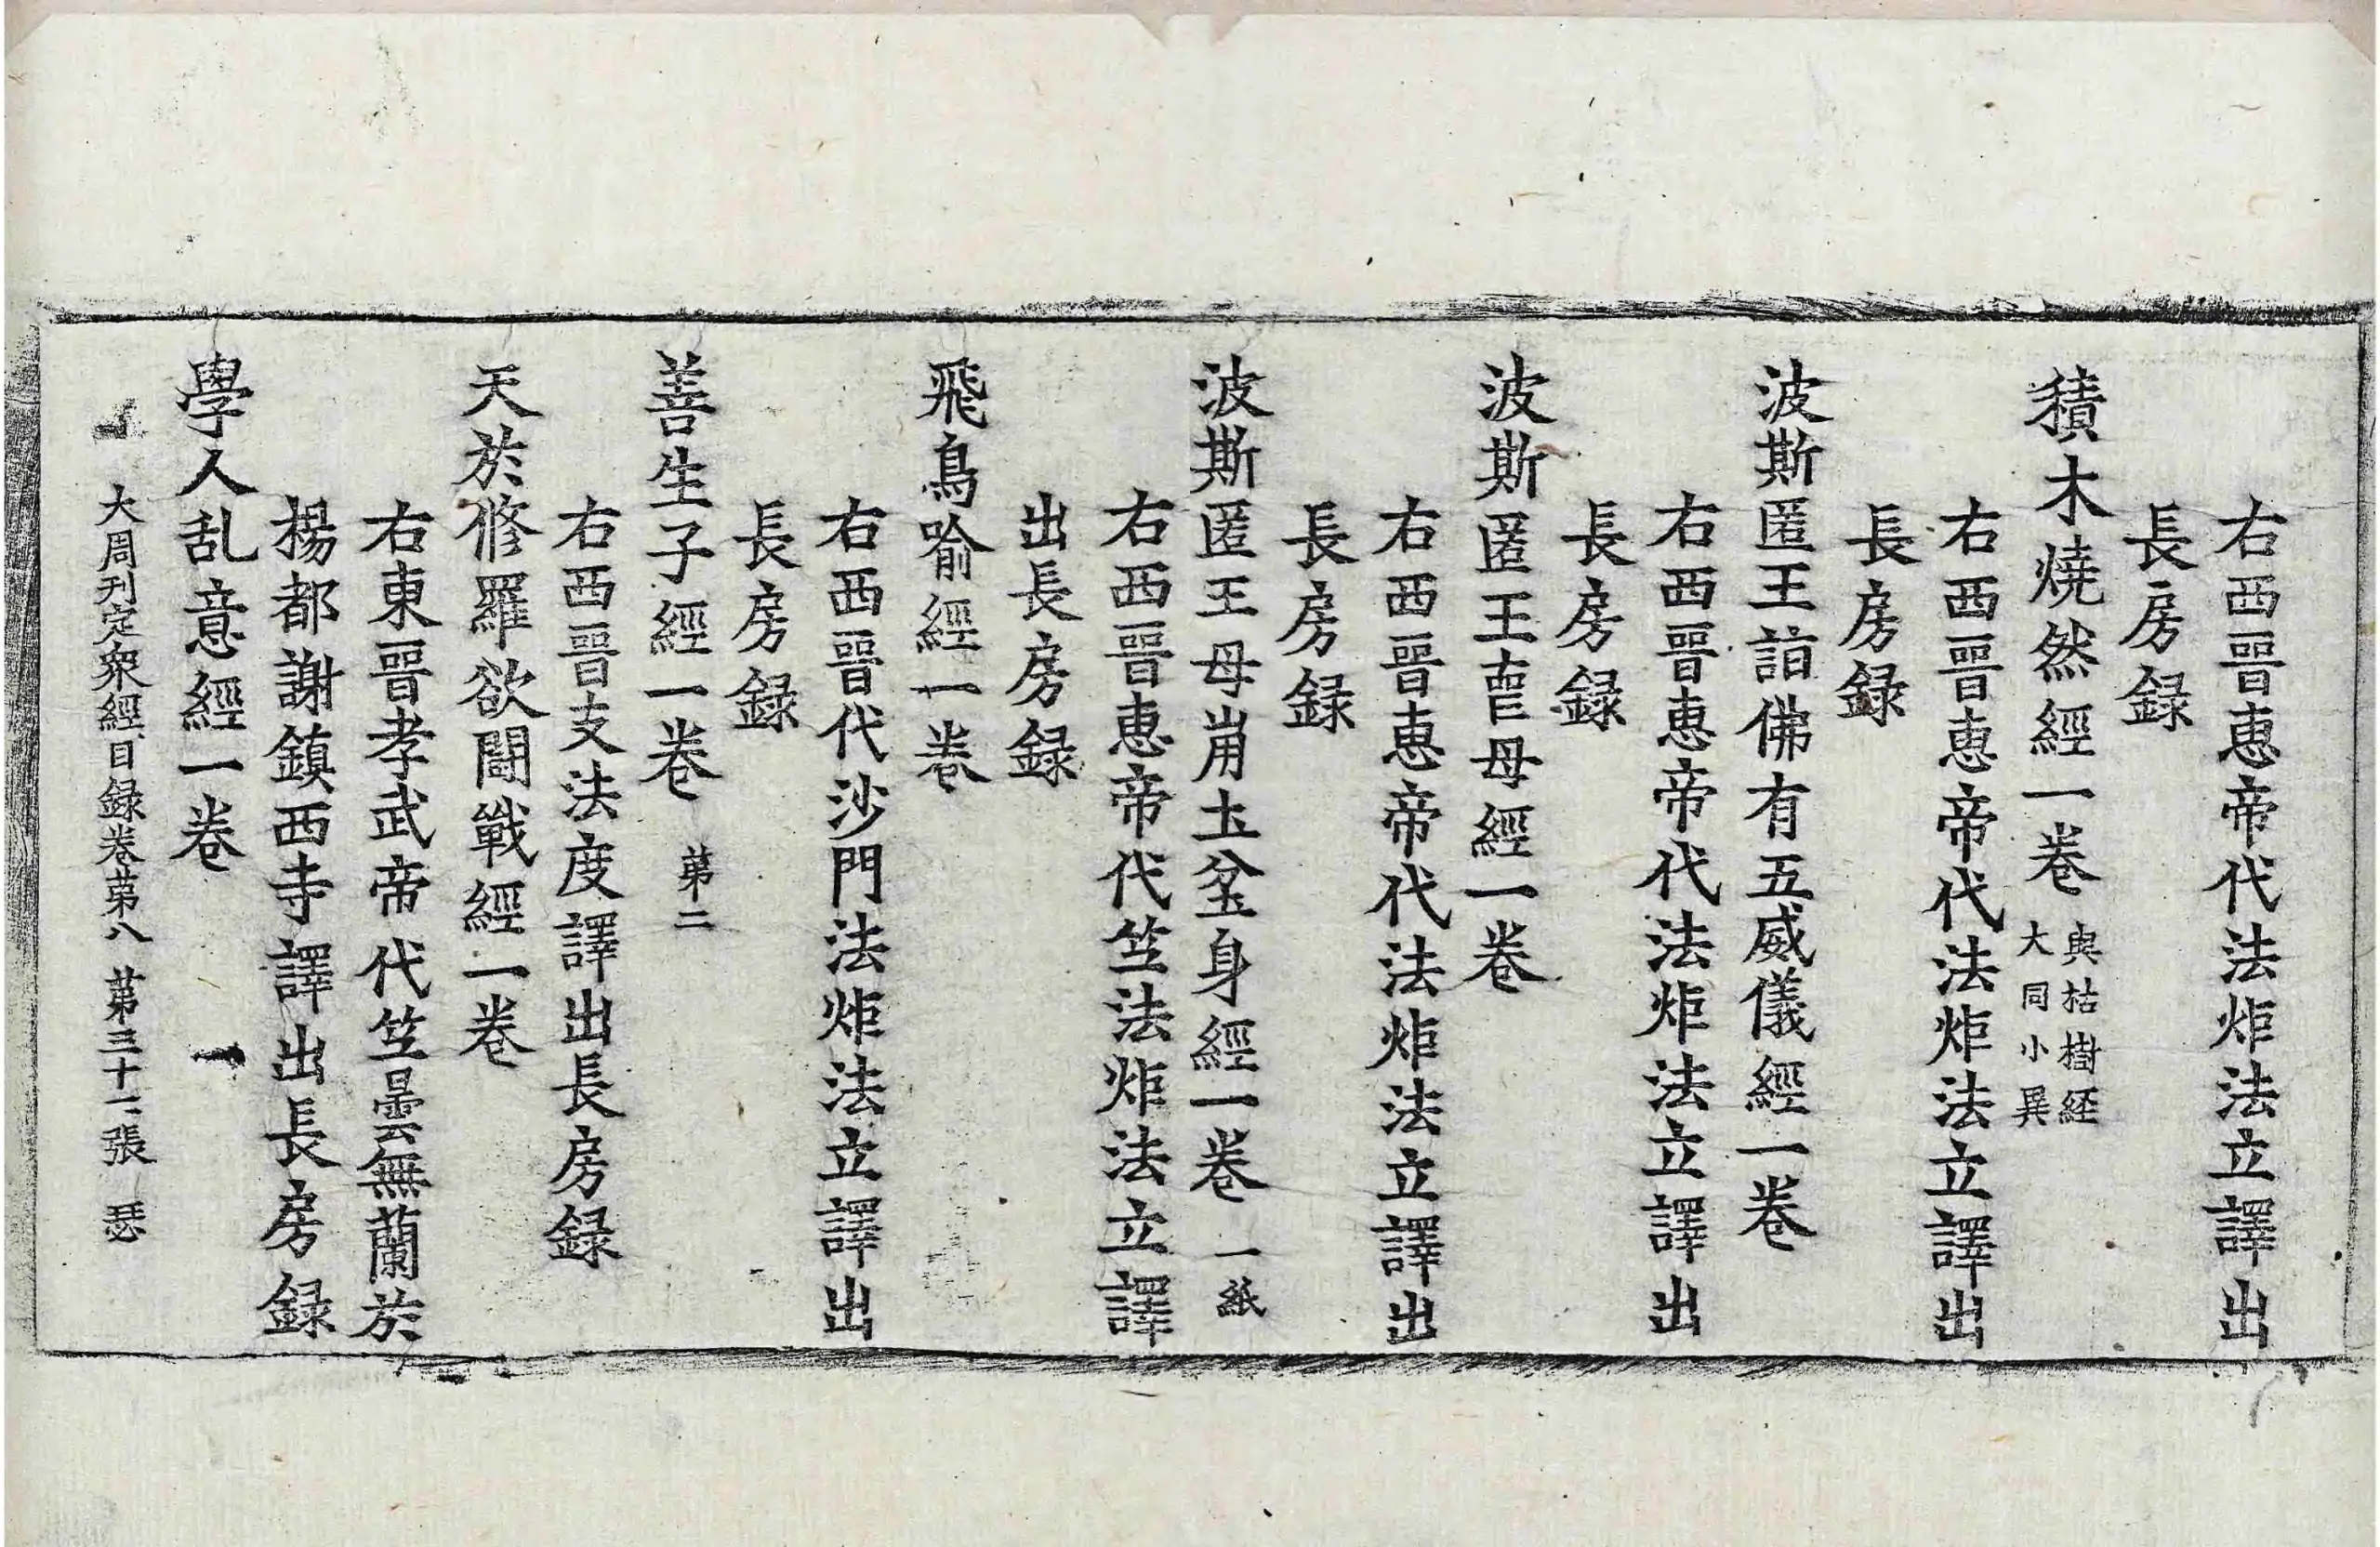 右西晉惠帝代法炬法立譯出
長房録
積木燒然經一卷 與枯樹経大同小異
右西晉惠帝代法炬法立譯出
長房録
波斯匿王詣佛有五威儀經一卷
右西晉惠帝代法炬法立譯出
長房録
波斯匿王䘮母經一卷
右西晉惠帝代法炬法立譯出
長房録
波斯匿王母崩圡坌身經一卷 一紙
右西晉惠帝代竺法炬法立譯
出長房録
飛鳥喻經一卷
右西晉代沙門法炬法立譯出
長房録
善生子經一卷 苐二
右西晉支法度譯出長房録
天於修羅欲鬪戰經一卷
右東晉孝武帝代竺曇無蘭於
楊都謝鎮西寺譯出長房録
學人乱意經一卷
大周刊定衆經目録卷苐八 苐三十二張 瑟